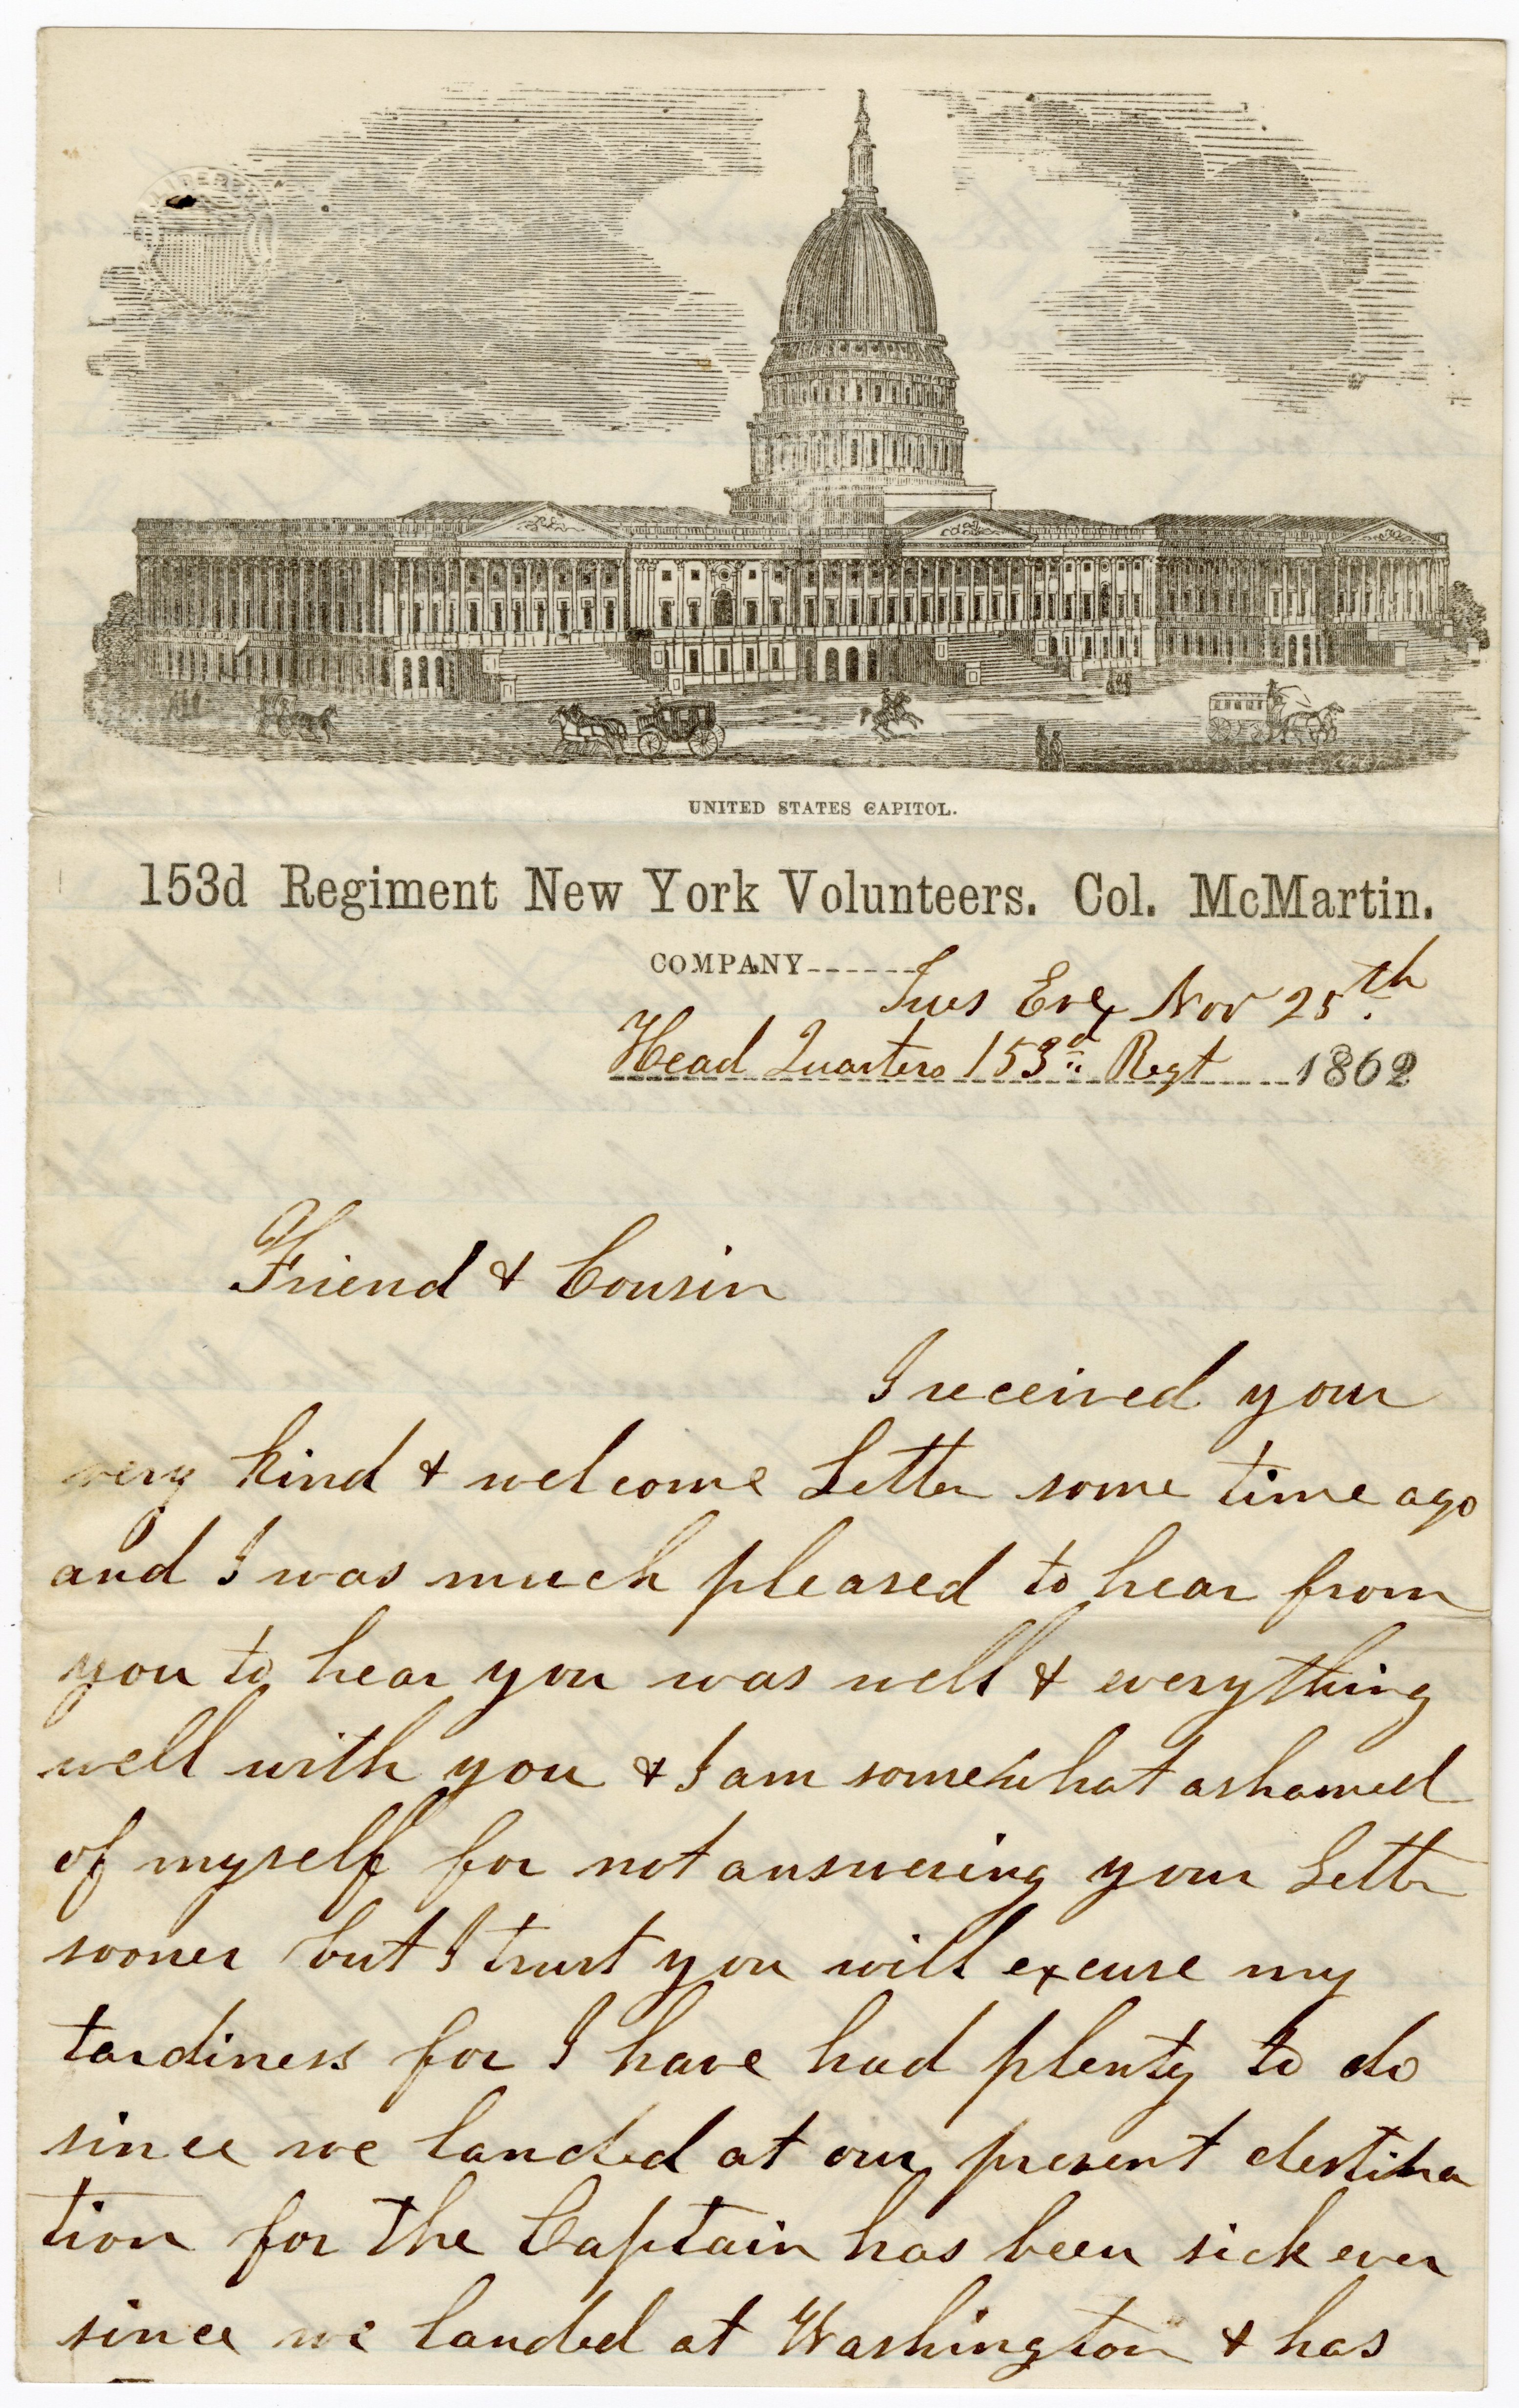 UNITED STATES CAPITOL.
153d Regiment New York Volunteers. Col. McMartin.
COMPANY------
Tues Eve, Nov 25th.
Head Quarters 153d Regt 1862
Friend & Cousin
I received your
very kind & welcome Letter some time ago
and I was much pleased to hear from
you to hear you was well & everything
well with you & I am somewhat ashamed
of myself for not answering your Letter
sooner but I trust you will excuse my
tardiness for I have had plenty to do
since we landed at our present destina
tion for the Captain has been sick ever
since we landed at Washington & has